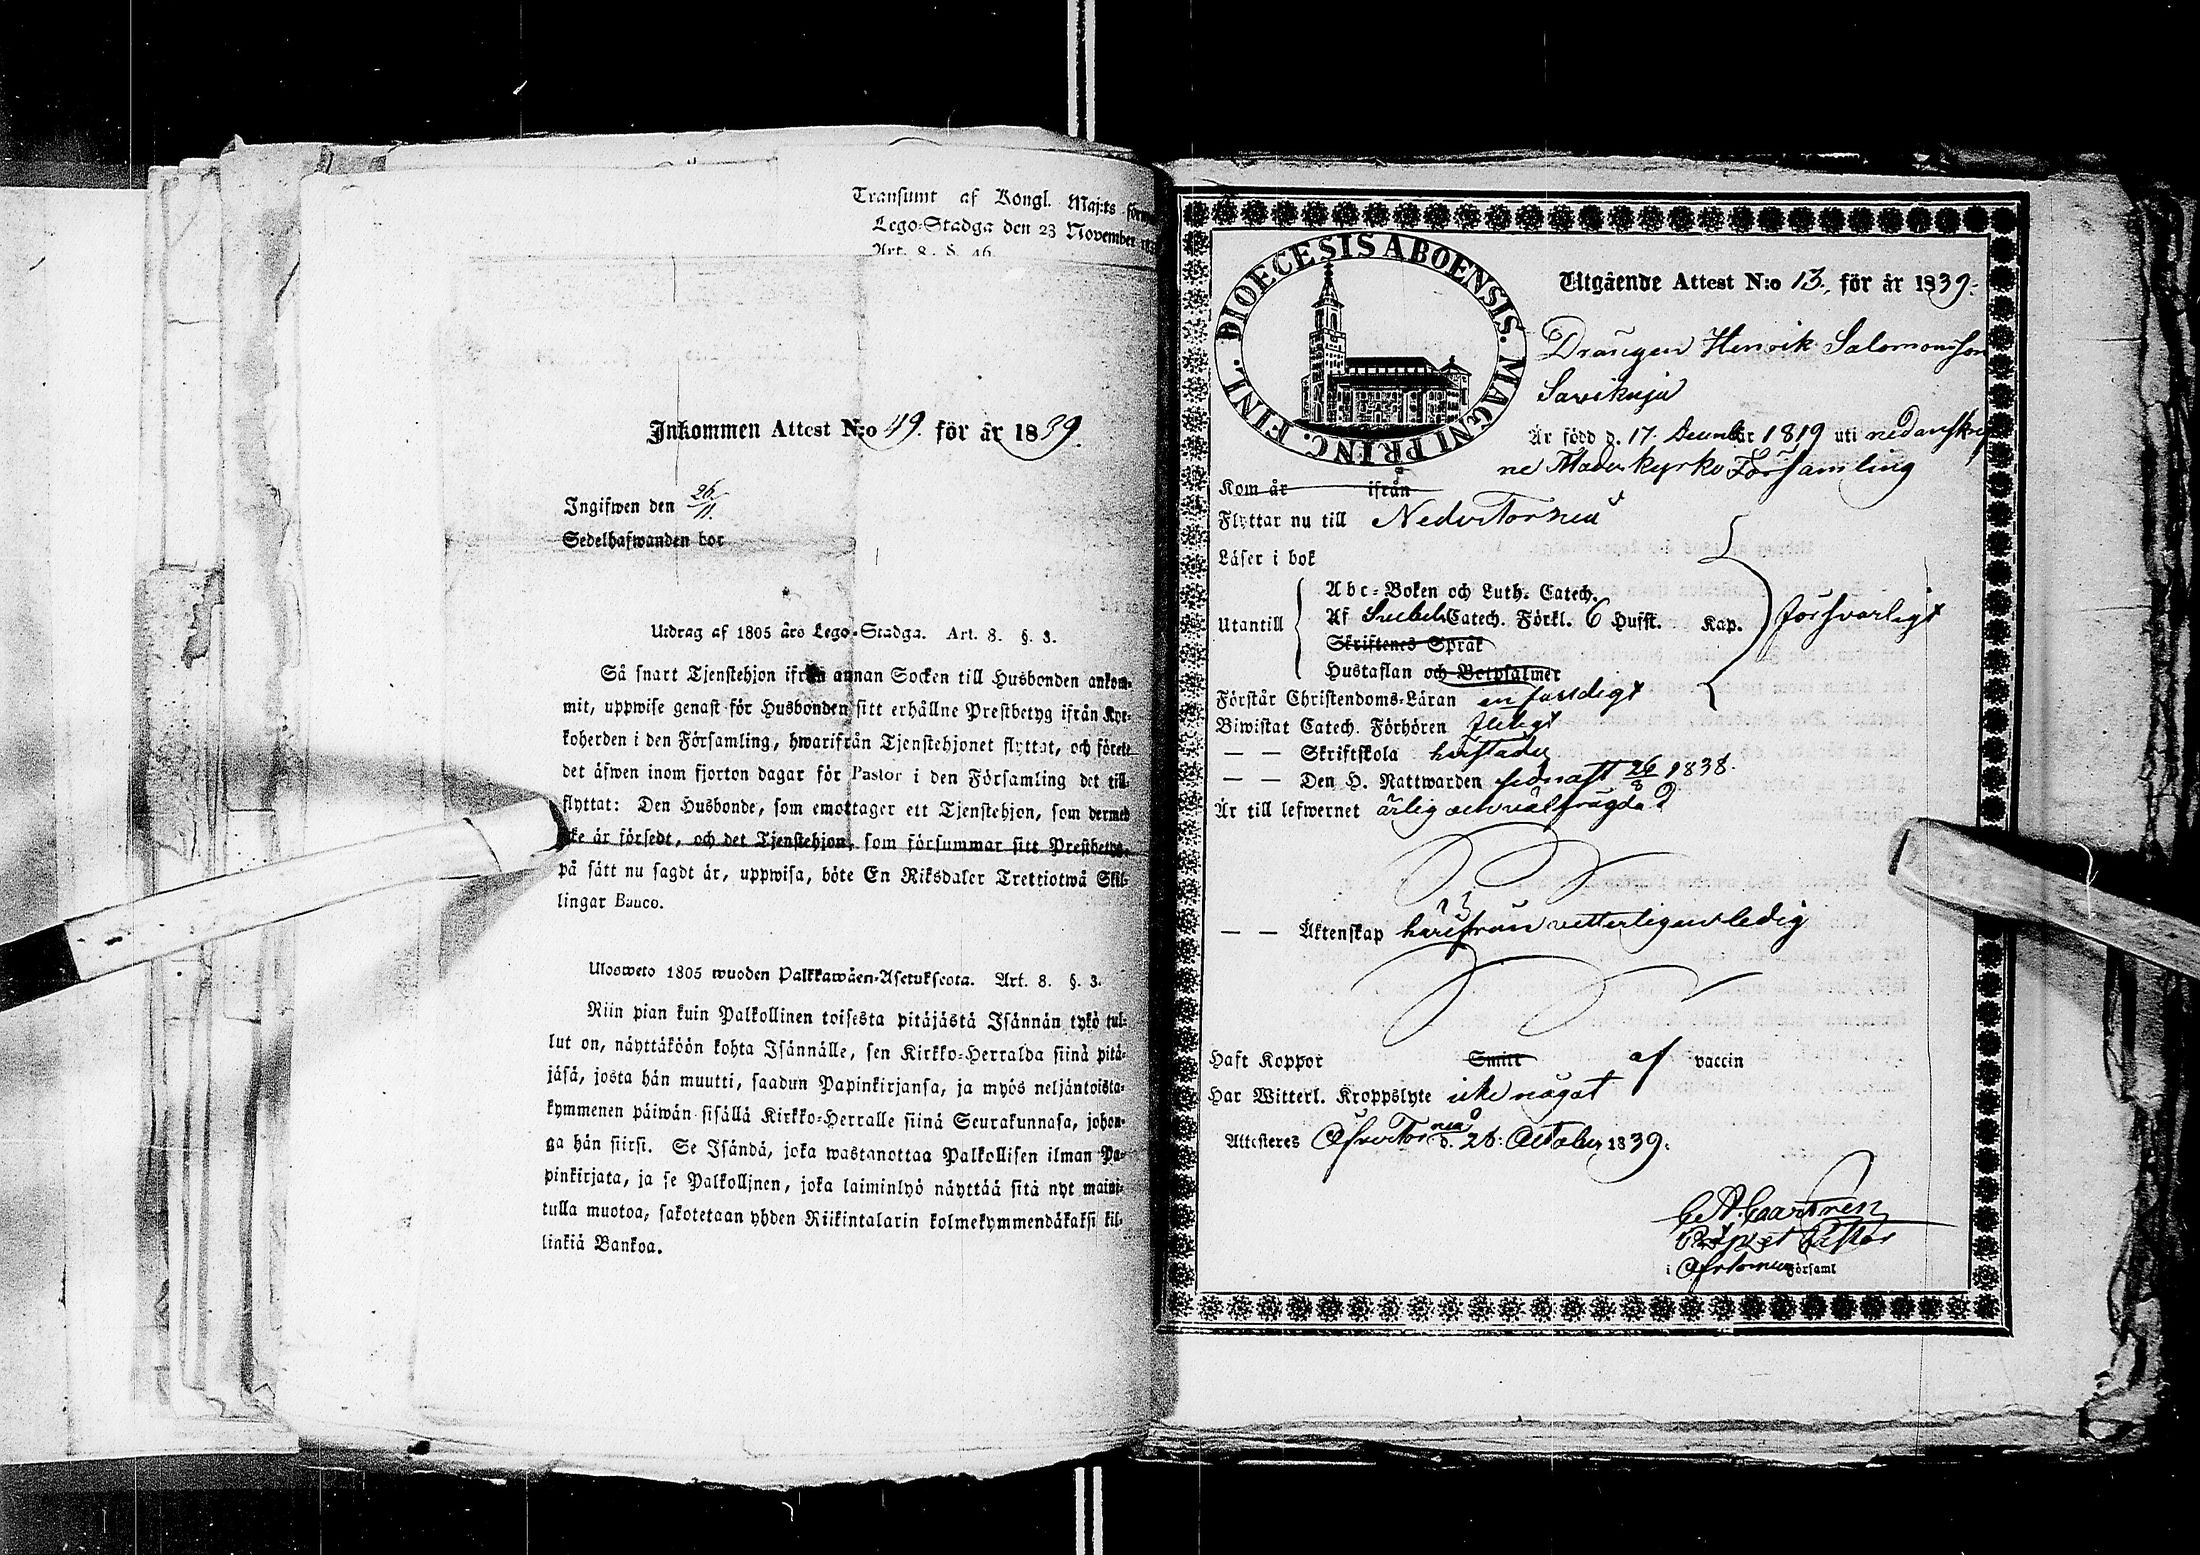 Transumt af Kongl. Maj:ts
Lego-Stadga den 23 November
Art. 8. §. 46.
Inkommen Attest N:o 49. för år 1839.
Ingifwen den 26/11.
Sedelhafwanden bor
Utdrag af 1805 års Lego-Stadga. Art. 8. §. 3.
Så snart Tjenstehjon ifrån annan Socken till Husbonden ankom-
mit, uppwise genast för Husbonden sitt erhållne Prestbetyg ifrån Kyr-
koherden i den Församling, hwarifrån Tjenstehjonet flyttat, och förete
det äfwen inom fjorton dagar för Pastor i den Församling det till
flyttat: Den Husbonde, som emottager ett Tjenstehjon, som dermed
icke är försedt, och det Tjenstehjon, som försummar sitt Prestbetyg,
på sätt nu sagdt är, uppwisa, böte En Riksdaler Trettiotwå Skil-
lingar Banco.
Ulosweto 1805 wuoden Palkkawäen-Asetuksesta. Art. 8. §. 3.
Niin pian kuin Palkollinen toisesta pitäjästä Isännän tykö tul-
lut on, näyttäköön kohta Isännälle, sen Kirkko-Herralda siinä pitä-
jäsä, josta hän muutti, saadun Papinkirjansa, ja myös neljäntoista-
kymmenen päiwän sisällä Kirkko-Herralle siinä Seurakunnasa, johon-
ga hän siirsi. Se Isändä, joka wastanottaa Palkollisen ilman Pa-
pinkirjata, ja se Palkollinen, joka laiminlyö näyttää sitä nyt maini-
tulla muotoa, sakotetaan yhden Riikintalarin kolmekymmendäkaksi kil-
linkiä Bankoa.
DIOECESIS ABOENSIS. MAGNI PRINC. FINL.
Utgående Attest N:o 13. för år 1839.
Drängen Henrik Salomonsson
Savikuja
Är född d. 17. Decemb:r 1819 uti nedanskref
ne Moderkyrko Församling
Kom år ifrån
Flyttar nu till NederTorneå
Läser i bok
Utantill
Abc-Boken och Luth. Catech.
Af Svebel. Catech. Förkl. 6 Hufst. Kap. försvarligt
Skriftenes Språk
Hustaflan och Botpsalmer
Förstår Christendoms-Läran enfaldigt
Biwistat Catech. Förhören flitigt
— — Skriftskola härstädes
— — Den H. Nattwarden sednast 26/8 1838.
Är till lefwernet ärlig och välfrägdad
— — Äktenskap härifrån vetterligen ledig
Haft Koppor Smitt af vaccin
Har Witterl. Kroppslyte icke något
Attesteres ÖfverTorneå d. 28. October 1839.
C. A. Caartren
Pastor
i Öfvtorneå Församl